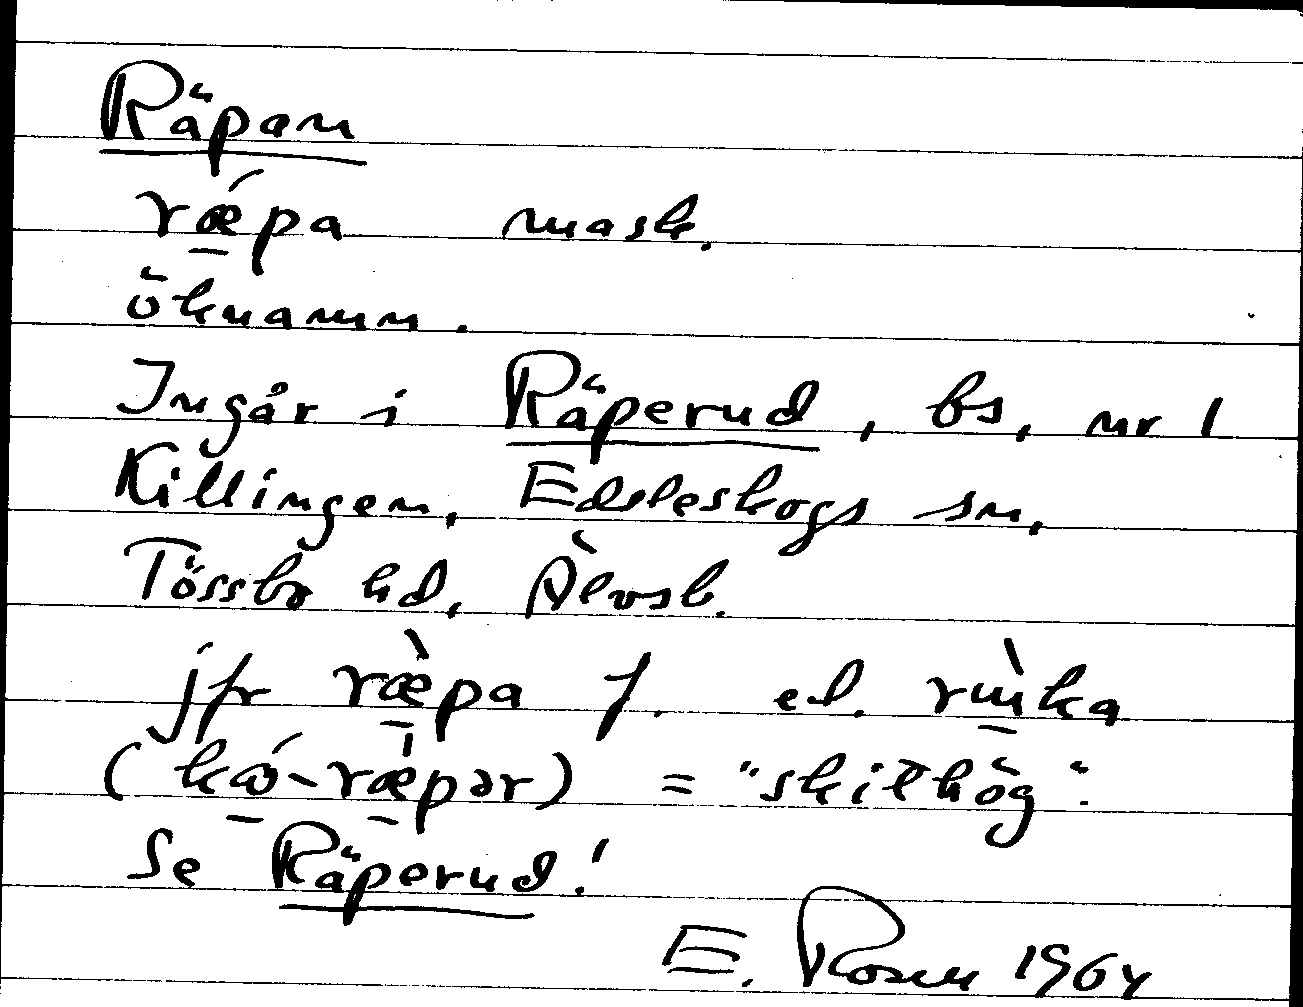 Räpan
rǽpa mask.
öknamn.
Ingår i Räperud, bs, nr 1
Killingen, Edsleskogs sn,
Tössbo hd, Älvsb.
jfr ræ̀pa f. el. rùka
(kó-ræpər) = "skithög".
Se Räperud!
E. Rosen 1964